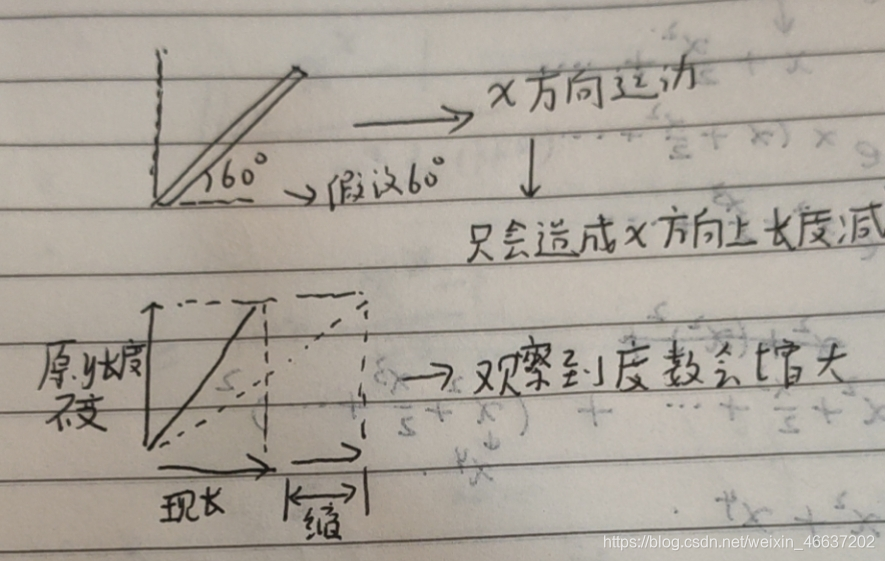 60°
→ 假设60°
→ x方向运动
↓
只会造成x方向上长度减
原y长度
不变
→ 观察到度数会增大
现长
缩
https://blog.csdn.net/weixin_46637202